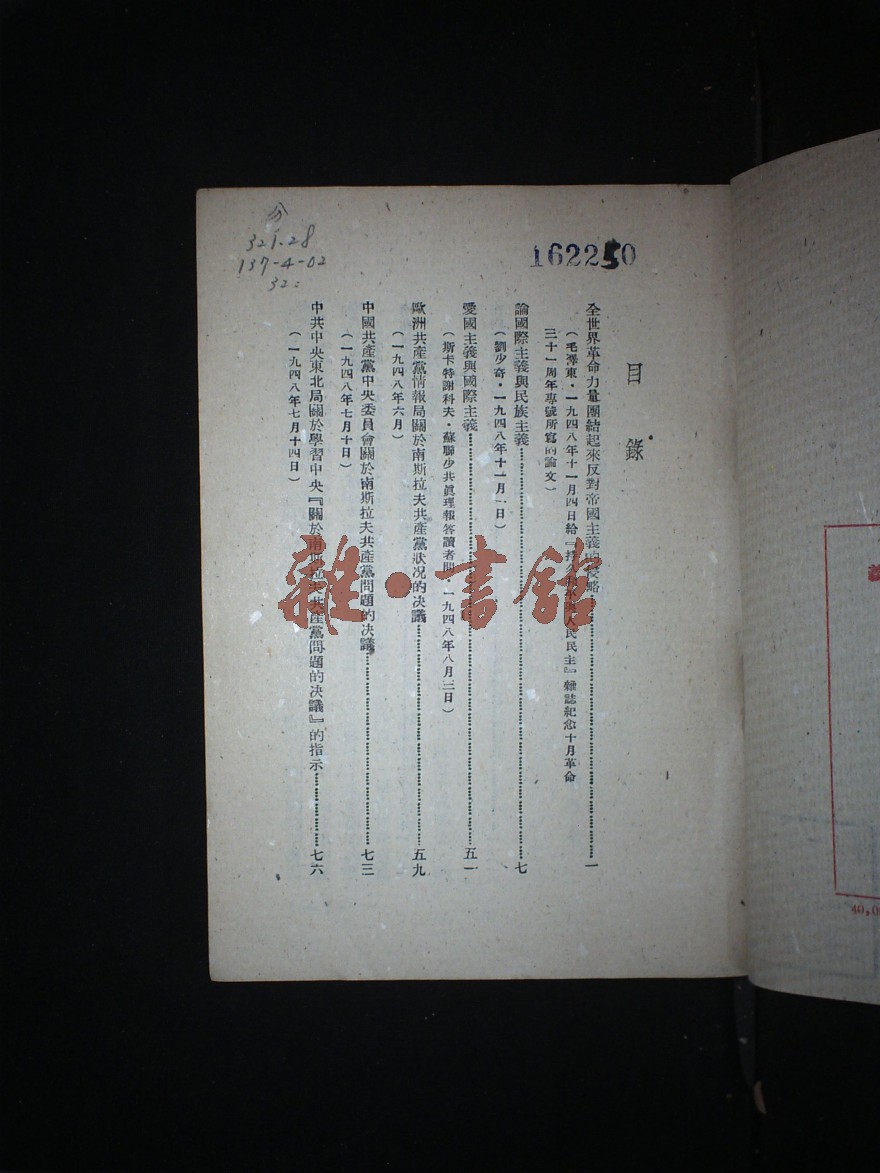 162250
321.28
137-4-02
32:
目錄
全世界革命力量團結起來反對帝國主義的侵略……一
(毛澤東·一九四八年十一月四日給『持久和平與人民民主』雜誌紀念十月革命
三十一周年專號所寫的論文)
論國際主義與民族主義……七
(劉少奇·一九四八年十一月一日)
愛國主義與國際主義……五一
(斯卡特謝科夫·蘇聯少共眞理報答讀者問·一九四八年八月三日)
歐洲共產黨情報局關於南斯拉夫共產黨狀况的决議……五九
(一九四八年六月)
中國共產黨中央委員會關於南斯拉夫共產黨問題的决議……七三
(一九四八年七月十日)
中共中央東北局關於學習中央『關於南斯拉夫共產黨問題的决議』的指示……七六
(一九四八年七月十四日)
雜·書館